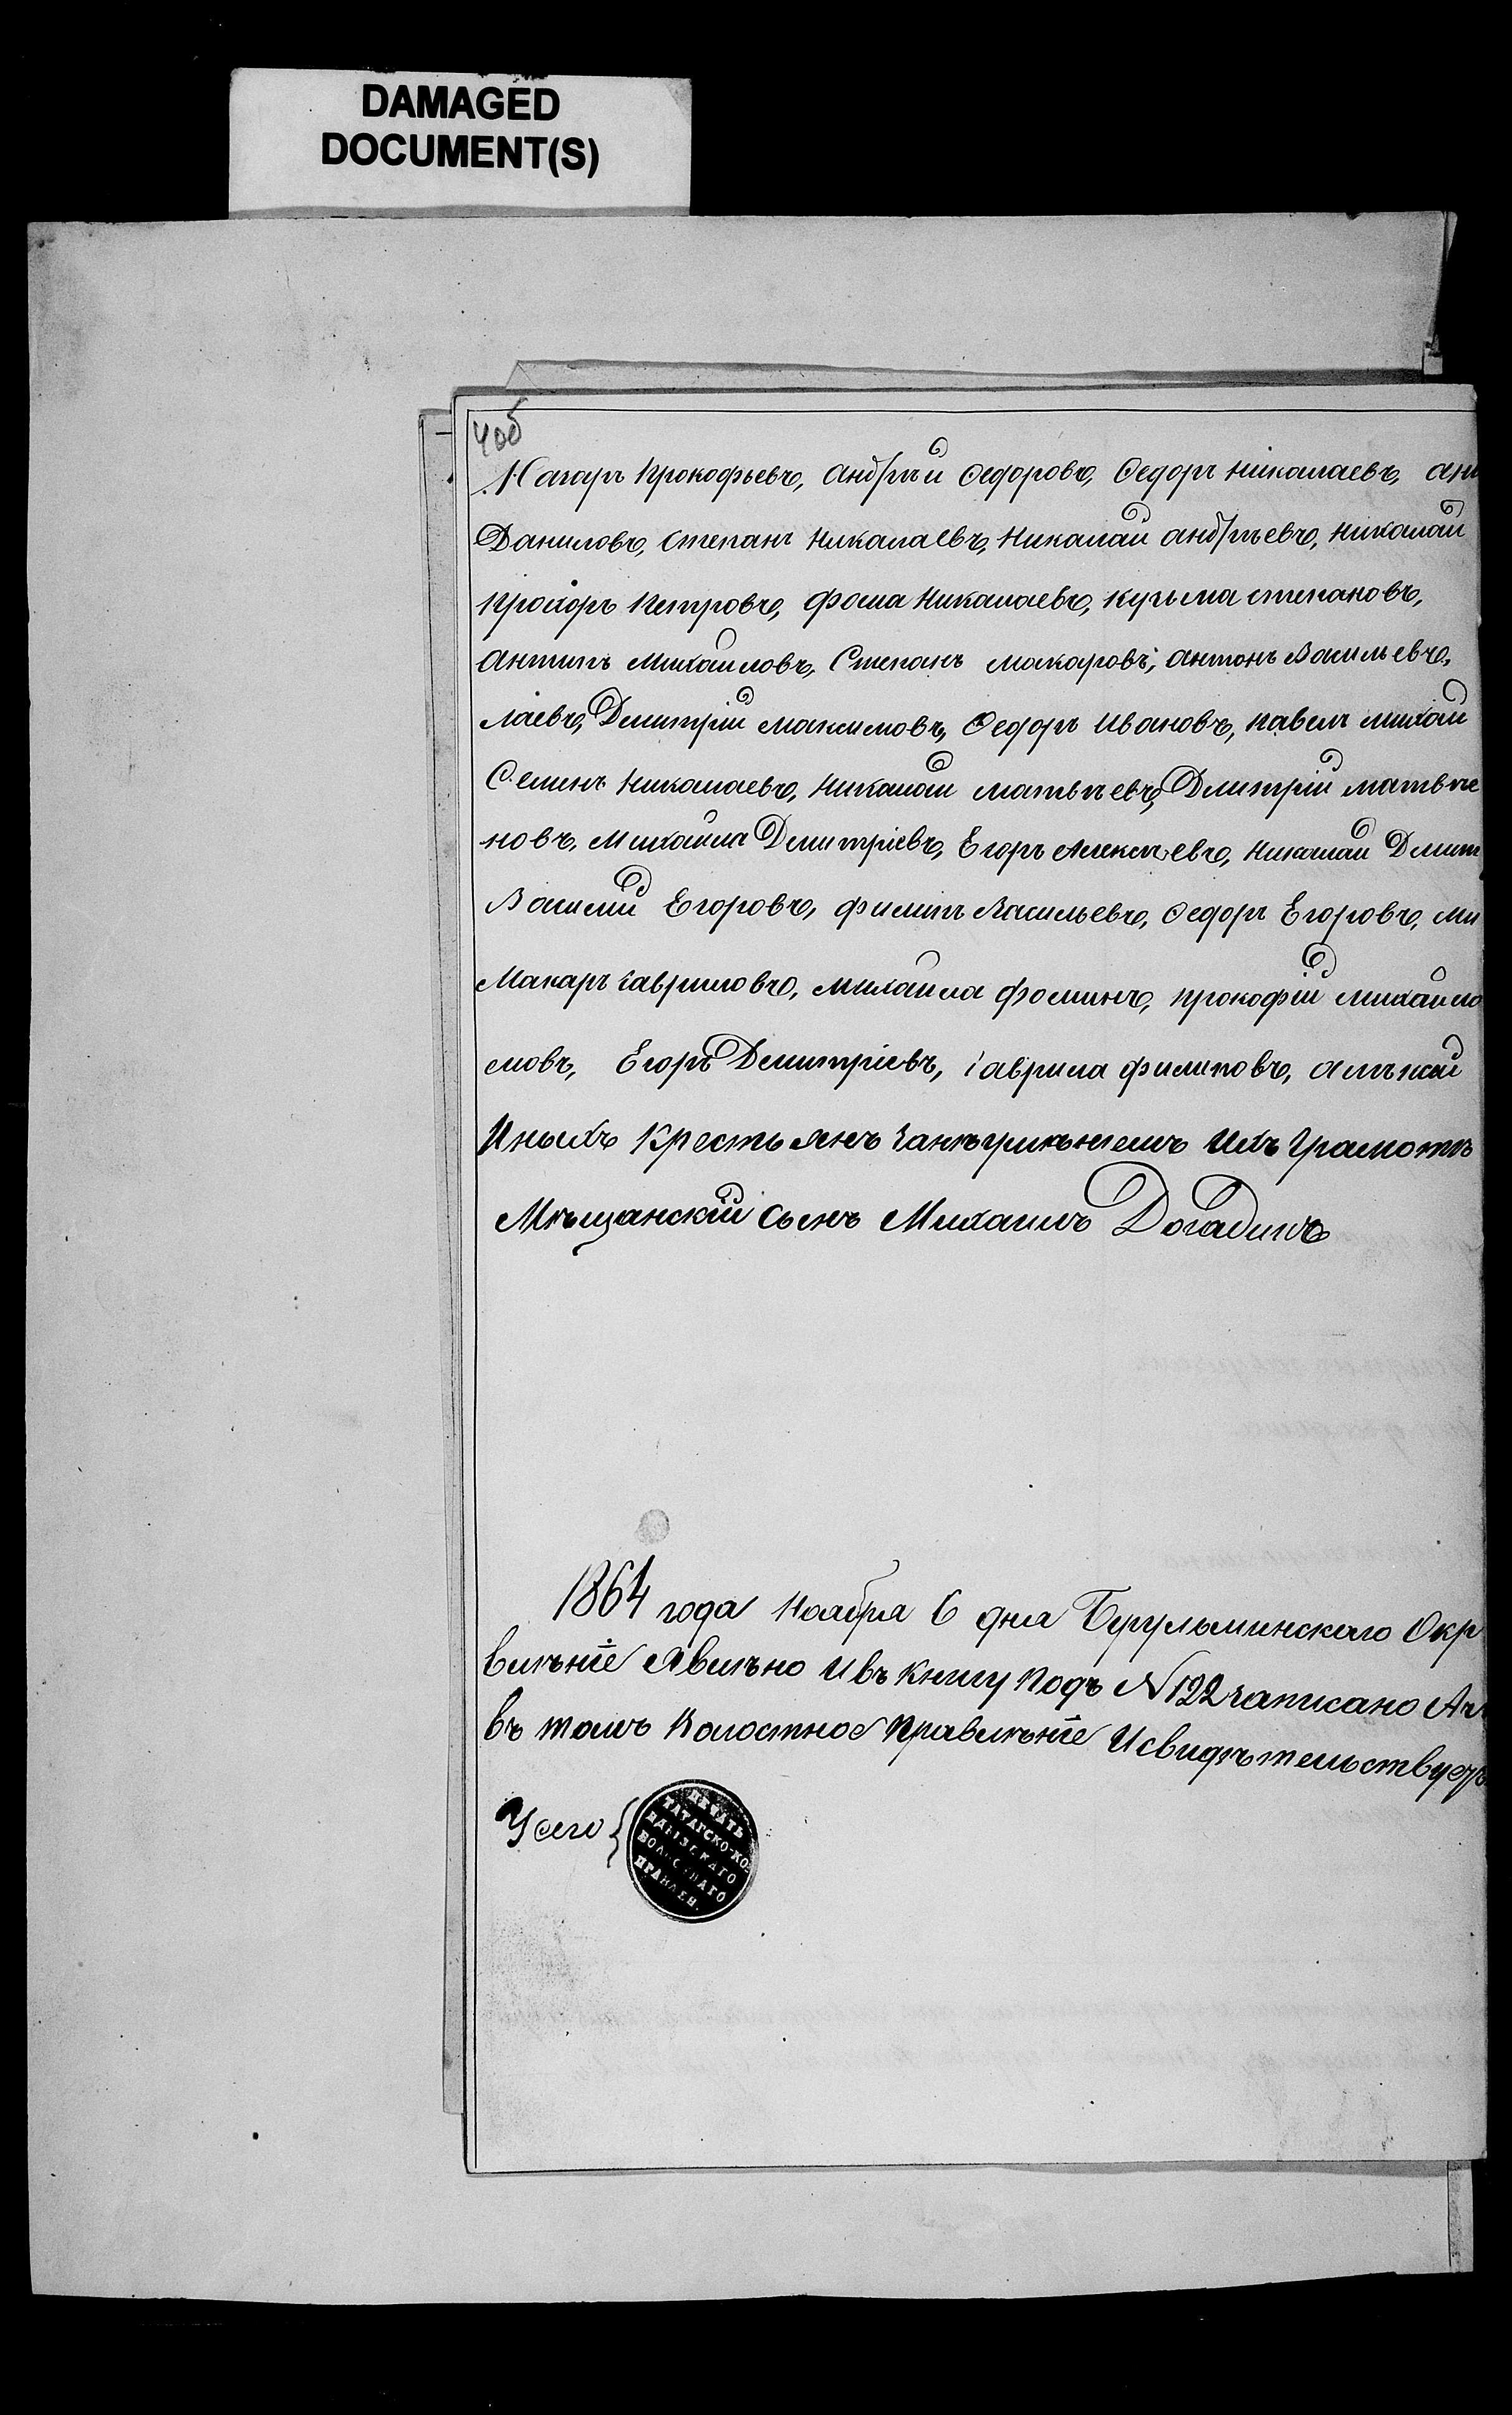 DAMAGED
DOCUMENT(S)
4об
Назаръ Прокофьевъ, андрѣй Ѳедоровъ, Ѳедоръ Николаевъ, ан
Даниловъ, степанъ Николаевъ, Николай андрѣевъ, Николай
Прохоръ Петровъ, фома Николаевъ, кузьма степановъ,
антипъ Михайловъ, Степанъ макаровъ, антонъ Васильевъ,
лаевъ, Дмитрій максимовъ, Ѳедоръ Ивановъ, павелъ михай
Семинъ Николаевъ, Николай матвѣевъ, Дмитрій матвѣе
новъ, Михайла Дмитріевъ, Егоръ Алексѣевъ, Николай Дмит
Василій Егоровъ, филипъ Васильевъ, Ѳедоръ Егоровъ, ми
Макаръ гавриловъ, михайла фоминъ, прокофій михайло
мовъ, Егоръ Дмитріевъ, гаврила филиповъ, алѣксѣй
Иныхъ Крестьянъ занѣумѣніемъ Ихъ Грамотѣ
Мѣщанскій сынъ Михаилъ Догадинъ
1864 года Ноября 6 дня Бугульминскаго Окр
вилѣніе Явилѣно И въ Книгу подъ N 122 записано
въ томъ Волостное Правилѣніе Исвидѣтельствуетъ
У сего
ПЕЧАТЬ
ТАТАРСКО-КО-
ВОЛОСТНАГО
ПРАВЛЕН.